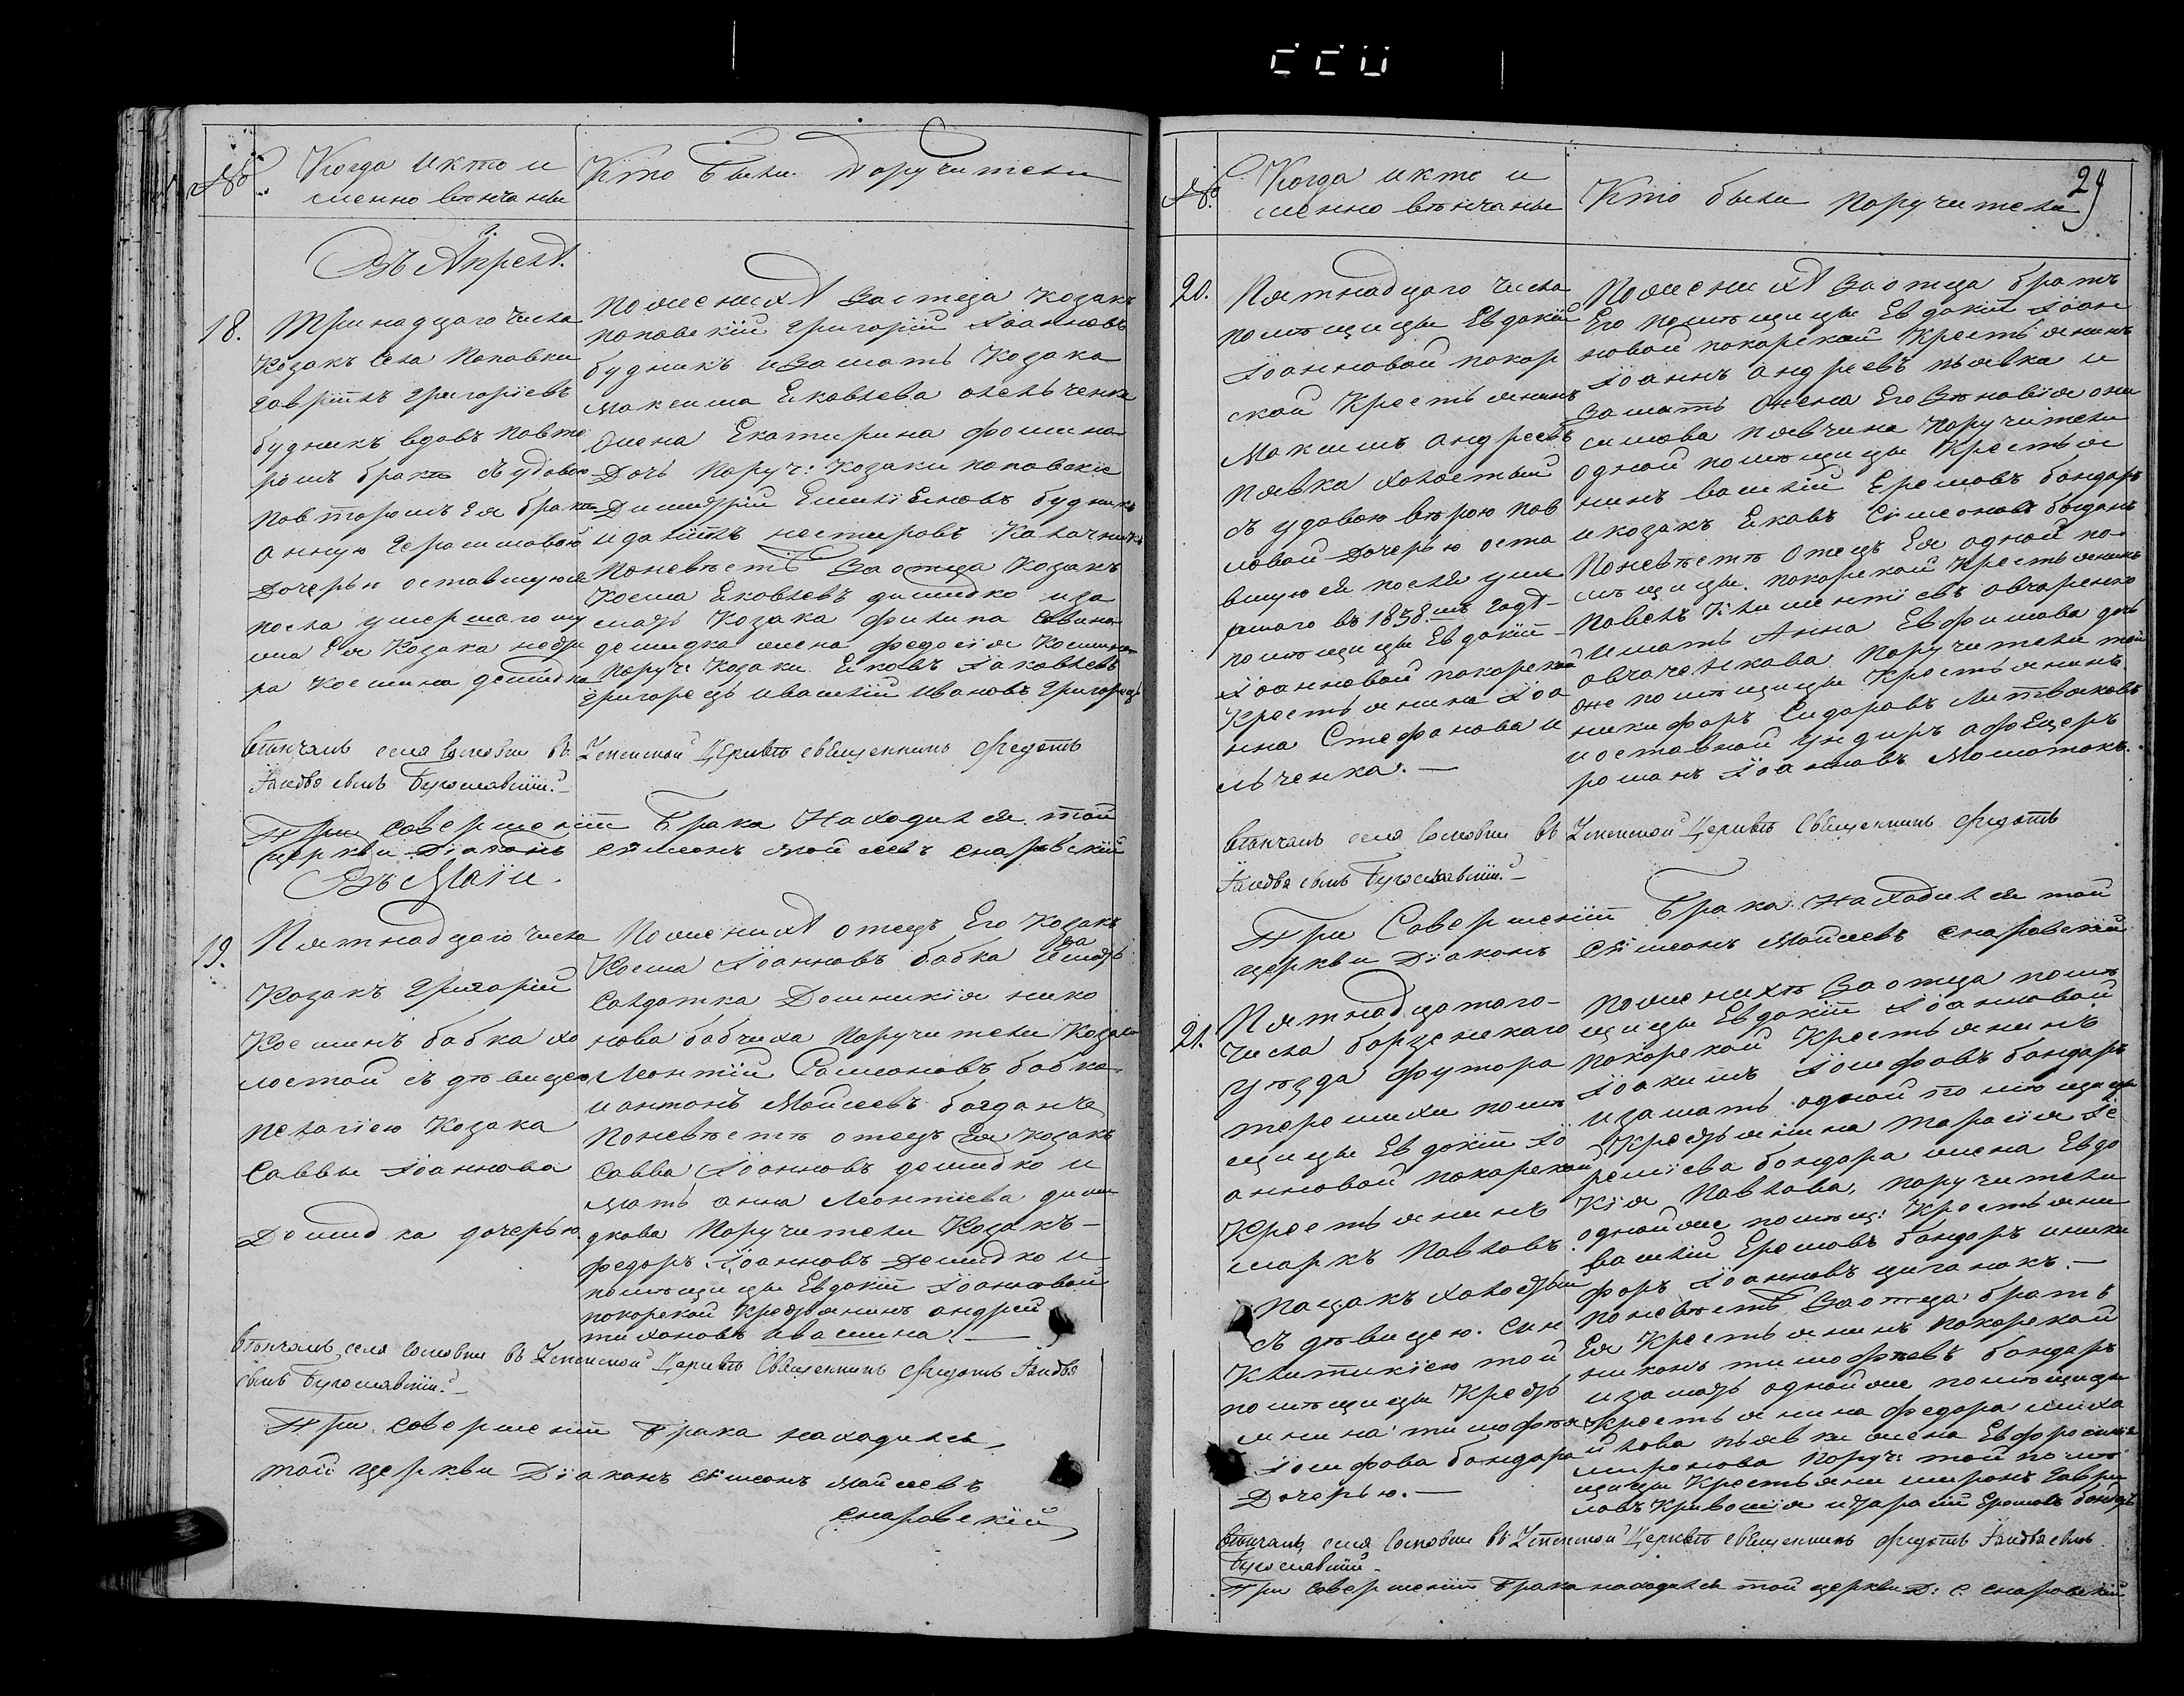 №
Когда и кто и
менно венчаны
Кто были Поручители
Въ Апреле.
18.
Тринадцаго числа
Козакъ села Поповки
Гавріилъ Григоріевъ
будникъ вдовъ повто
ромъ бракѣ съ удовою
повторомъ Ея бракѣ
Анную Герасимовою
Дочерью оставшуюся
посла умершаго му
жа Ея Козака
Космина
Поженихѣ За отца Козакъ
поповскій Григорій Іоанновъ
будникъ и За мать Козака
Максима Яковлева
жена Екатирина Фомина
Дочь Поруч: Козаки поповскіе
Димитрій Емиліяновъ будникъ
и даніилъ нестировъ Калачникъ
Поневѣстѣ За отца Козакъ
Косма Яковлевъ демидко и за
мать Козака Филипа Савина
демидка жена федосія Космина
поруч: Козаки Яковъ Іаковлевъ
Григорецъ и василій Ивановъ Григорецъ
вѣнчалъ села въ Успенской Церквѣ священникъ Федотъ
Богуславскій.
При совершеніи Брака Находился той
церкви Діаконъ Симеонъ Мойсеевъ снаровскій
Въ Маіи.
19.
Пятнадцаго числа
Козакъ Григорій
Косминъ бабка хо
лостой съ дѣвицею
Пелагіею Козака
Саввы Іоаннова
Демидка дочерью.
Поженихѣ отецъ Его Козакъ
Косма Іоанновъ бабка и за мать
Салдатка Домникія нико
нова бабчиха поручители Козаки
Леонтій Самсоновъ бабка
и антонъ Мойсеевъ
Поневѣстѣ отецъ Ея козакъ
Савва Іоанновъ демидко и
мать анна Леонтіева деми
дкова Поручители Козакъ
федоръ Іоанновъ Демидко и
помѣщицы Евдокіи Іоанновой
покорской крестьянинъ андрей
тихоновъ ивашина.
вѣнчалъ села въ Успенской Церквѣ Священникъ Федотъ
Богуславскій.
При совершеніи брака находился
той церкви Діаконъ Симеонъ Мойсеевъ
снаровскій
29
№
Когда и кто и
менно вѣнчаны
Кто были поручители
20.
Пятнадцаго числа
помѣщицы Евдокіи
Іоанновой покор
ской Крестьянинъ
Максимъ андреевъ
Пявка холостый
съ удовою вѣрою пав
ловой Дочерью оста
вшуюся послѣ уме
ршаго въ 1838.мъ годѣ
помѣщицы Евдокіи
Іоанновой покорской
Крестьянина Іоа
нна Стефанова
Поженихѣ За отца братъ
Его помѣщицы Евдокіи Іоан
новой покорской Крестьянинъ
Іоаннъ андреевъ пьявка и
за мать жена Его
Поручители
одной помѣщицы Крестья
нинъ василій Еремовъ бондаръ
и козакъ Яковъ Симеоновъ
Поневѣстѣ отецъ Ея одной по
мѣщицы покорской Крестьянинъ
Павелъ Климентіевъ овчаренко
и мать Анна Евфимова дочь
Поручители той
же помѣщицы Крестьянинъ
никифоръ Сидоровъ Литвяковъ
и оставной ундиръ афецеръ
романъ Іоанновъ
вѣнчалъ села въ Успенской Церквѣ Священникъ Федотъ
Богуславскій.
При Совершеніи Брака Находился той
церкви Діаконъ Симеонъ Мойсеевъ снаровскій
21.
Пятнадцатого
числа борзенскаго
уѣзда футора
терешихи помѣ
щицы Евдокіи Іо
анновой покорской
Крестьянинъ
маркъ Павловъ
пацакъ холостый
съ дѣвицею Син
клитикіею той
помѣщицы Кресть
янина тимофея
Іосифова бондара
Дочерью.
Поженихѣ За отца помѣ
щицы Евдокіи Іоанновой
покорской Крестьянинъ
Іоакимъ Іосифовъ бондаръ
и за мать одной помѣщицы
Крестьянина Тарасія Іе
реміева бондара жена Евдо
кія Павлова, поручители
одной же помѣщ: Крестьяни
василій Еремовъ бондаръ и ники
форъ Іоанновъ циганокъ.
поневѣстѣ За отца братъ
Ея Крестьянинъ покорской
никонъ тимофѣевъ бондаръ
и за мать одной же помѣщицы
Крестьянина федора миха
йлова пьявки жена Евфросинія
миронова Поруч: той помѣ
щицы Крестьяни миронъ Гаври
ловъ Кривошія и тарасій Еремовъ бондаръ
Вѣнчалъ села въ Успенской Церквѣ священникъ Федотъ
Богуславскій
При Совершеніи брака находился той церкви Д: С. снаровскій